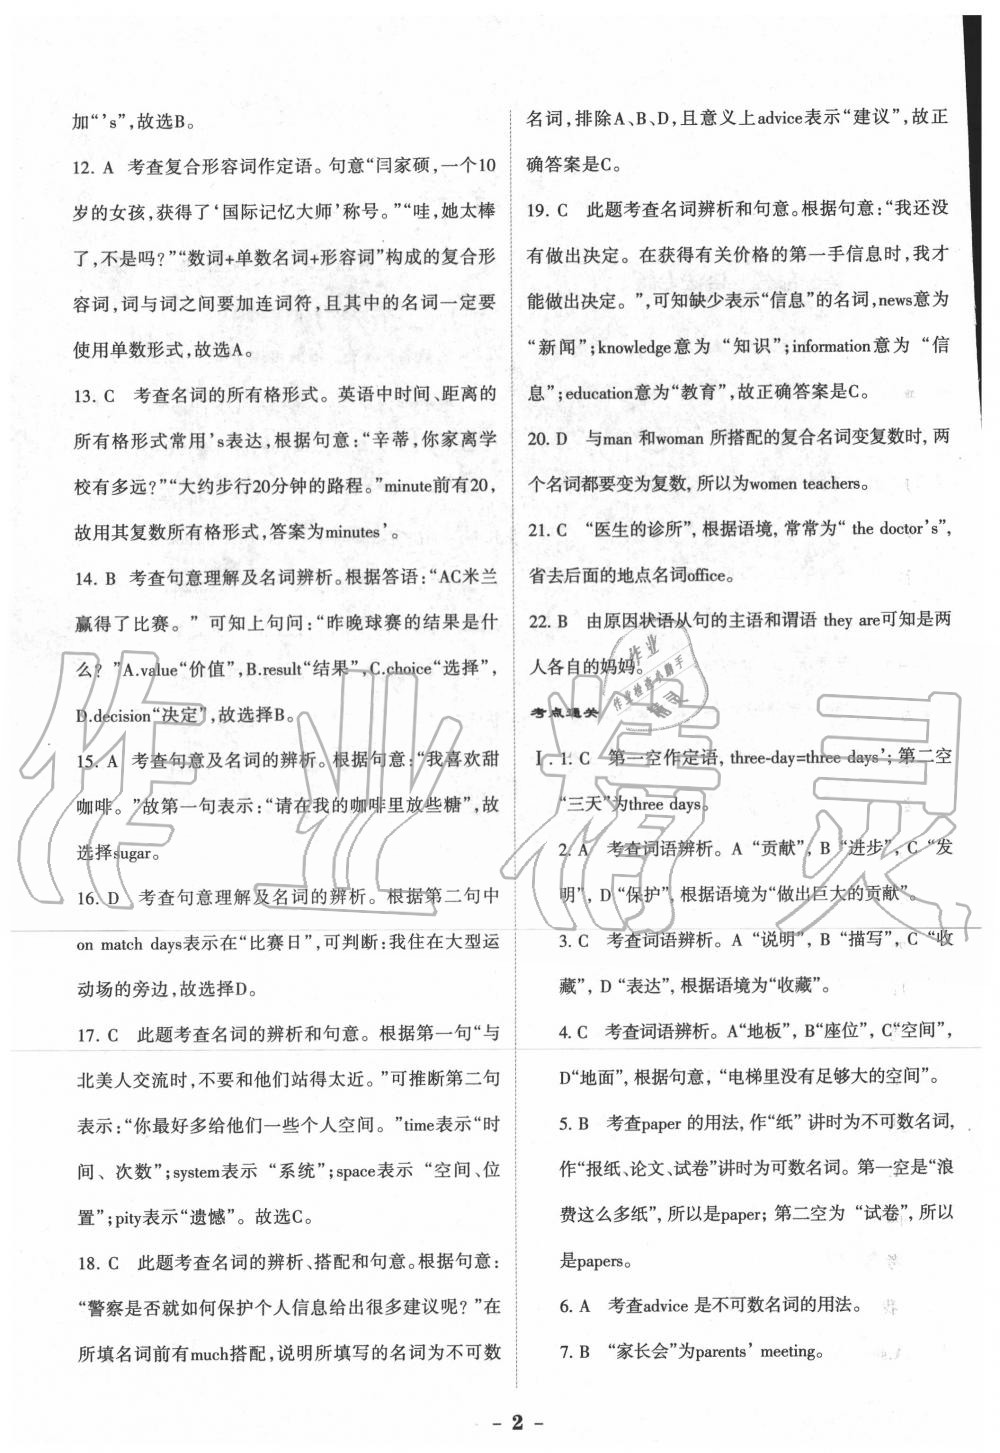 加“’s”,故选B。
12. A 考查复合形容词作定语。句意“闫家硕,一个10
岁的女孩,获得了‘国际记忆大师’称号。”“哇,她太棒
了,不是吗?”“数词+单数名词+形容词”构成的复合形
容词,词与词之间要加连词符,且其中的名词一定要
使用单数形式,故选A。
13. C 考查名词的所有格形式。英语中时间、距离的
所有格形式常用’s表达,根据句意:“辛蒂,你家离学
校有多远?”“大约步行20分钟的路程。”minute前有20,
故用其复数所有格形式,答案为minutes’。
14. B 考查句意理解及名词辨析。根据答语:“AC米兰
赢得了比赛。” 可知上句问:“昨晚球赛的结果是什
么? ”A.value“价值”,B.result“结果”,C.choice“选择”,
D.decision“决定”,故选择B。
15. A 考查句意及名词的辨析。根据句意:“我喜欢甜
咖啡。”故第一句表示:“请在我的咖啡里放些糖”,故
选择sugar。
16. D 考查句意理解及名词的辨析。根据第二句中
on match days表示在“比赛日”,可判断:我住在大型运
动场的旁边,故选择D。
17. C 此题考查名词的辨析和句意。根据第一句“与
北美人交流时,不要和他们站得太近。”可推断第二句
表示:“你最好多给他们一些个人空间。”time表示“时
间、次数”;system表示 “系统”;space表示 “空间、位
置”;pity表示“遗憾”。故选C。
18. C 此题考查名词的辨析、搭配和句意。根据句意:
“警察是否就如何保护个人信息给出很多建议呢?”在
所填名词前有much搭配,说明所填写的名词为不可数
名词,排除A、B、D,且意义上advice表示“建议”,故正
确答案是C。
19. C 此题考查名词辨析和句意。根据句意:“我还没
有做出决定。在获得有关价格的第一手信息时,我才
能做出决定。”,可知缺少表示“信息”的名词,news意为
“新闻”;knowledge意为 “知识”;information意为 “信
息”;education意为“教育”,故正确答案是C。
20. D 与man 和woman 所搭配的复合名词变复数时, 两
个名词都要变为复数, 所以为women teachers。
21. C “医生的诊所”, 根据语境, 常常为“ the doctor’s”,
省去后面的地点名词office。
22. B 由原因状语从句的主语和谓语 they are可知是两
人各自的妈妈。
考点通关
Ⅰ. 1. C 第一空作定语, three-day=three days’; 第二空
“三天”为three days。
2. A 考查词语辨析。A “贡献”, B “进步”, C “发
明”, D “保护”, 根据语境为“做出巨大的贡献”。
3. C 考查词语辨析。A “说明”, B “描写”, C “收
藏”, D “表达”, 根据语境为“收藏”。
4. C 考查词语辨析。A“地板”, B“座位”, C“空间”,
D“地面”, 根据句意, “电梯里没有足够大的空间”。
5. B 考查paper 的用法, 作“纸” 讲时为不可数名词,
作“报纸、论文、试卷”讲时为可数名词。第一空是“浪
费这么多纸”, 所以是paper; 第二空为 “试卷”, 所以
是papers。
6. A 考查advice 是不可数名词的用法。
7. B “家长会”为parents’ meeting。
作业
作业检查小助手
精灵
作业精灵
- 2 -